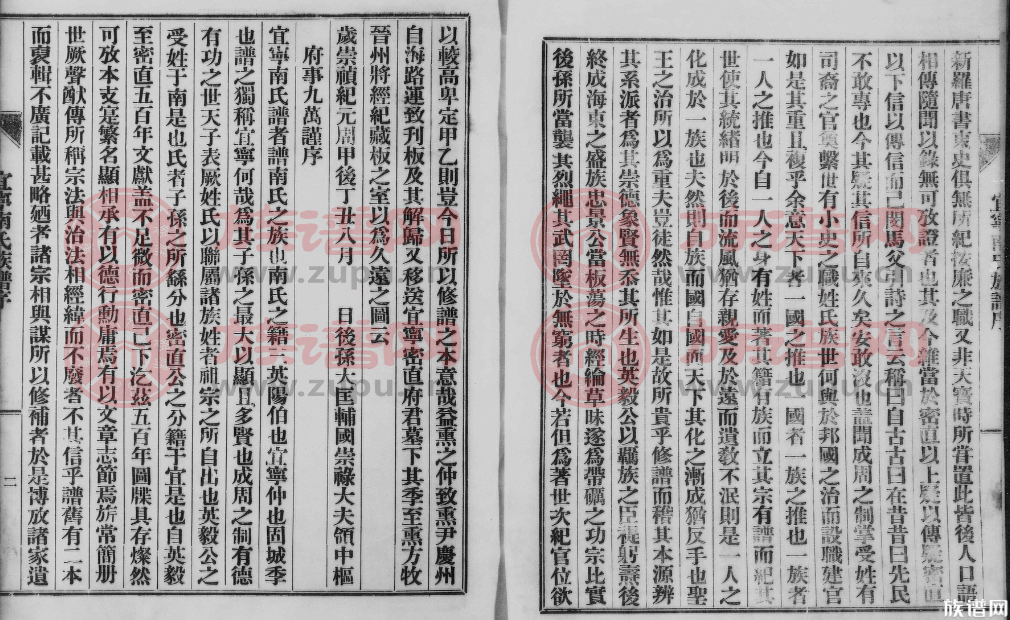 宜寧南氏族譜序
新羅唐書東史俱無所紀按廉之職又非天寶時所嘗置此皆後人口語
相傳隨聞以錄無可攷證者也其及今雖當於密直以上疑以傳疑密直
以下信以傳信而已閔馬父引詩之言云稱曰自古古曰在昔昔曰先民
不敢專也今其疑其信所自來久矣安敢沒也蓋聞成周之制掌受姓有
司裔之官奠繫世有小史之職姓氏族世何與於邦國之治而設職建官
如是其重且複乎余意天下者一國之推也一國者一族之推也一族者
一人之推也今自一人之身有姓而著其籍有族而立其宗有譜而紀其
世使其統緒明於後而流風猶存親愛及於遠而遺敎不泯則是一人之
化成於一族也夫然則自族而國自國而天下其化之漸成猶反手也聖
王之治所以爲重夫豈徒然哉惟其如是故所貴乎修譜而稽其本源辨
其系派者爲其崇德象賢無忝其所生也英毅公以覊族之臣 躬燾後
終成海東之盛族忠景公當板蕩之時經綸草昧遂爲帶礪之功宗比實
後孫所當襲其烈繩其武罔墜於無窮者也今若但爲著世次紀官位欲
以較高卑定甲乙則豈今日所以修譜之本意哉益熏之仲致熏尹慶州
自海路運致刋板及其解歸又移送宜寧密直府君墓下其季至熏方牧
晉州將經紀藏板之室以爲久遠之圖云
歲崇禎紀元周甲後丁丑八月 日後孫大匡輔國崇祿大夫領中樞
府事九萬謹序
宜寧南氏譜者譜南氏之族也南氏之籍三英陽伯也宜寧仲也固城季
也譜之獨稱宜寧何哉爲其子孫之最大以顯且多賢也成周之制有德
有功之世天子表厥姓氏以聯屬諸族姓者祖宗之所自出也英毅公之
受姓于南是也氏者子孫之所繇分也密直公之分籍于宜是也自英毅
至密直五百年文獻蓋不足徵而密直已下迄茲五百年圖牒具存燦然
可攷本支寔繁名顯相承有以德行勳庸焉有以文章志節焉旂常簡册
世厥聲猷傳所稱宗法與治法相經緯而不廢者不其信乎譜舊有二本
而裒輯不廣記載甚略廼者諸宗相與謀所以修補者於是博攷諸家遺
宜寧南氏族譜序
二
族谱网
www.zupu.cn
族谱网
www.zupu.cn
族谱网